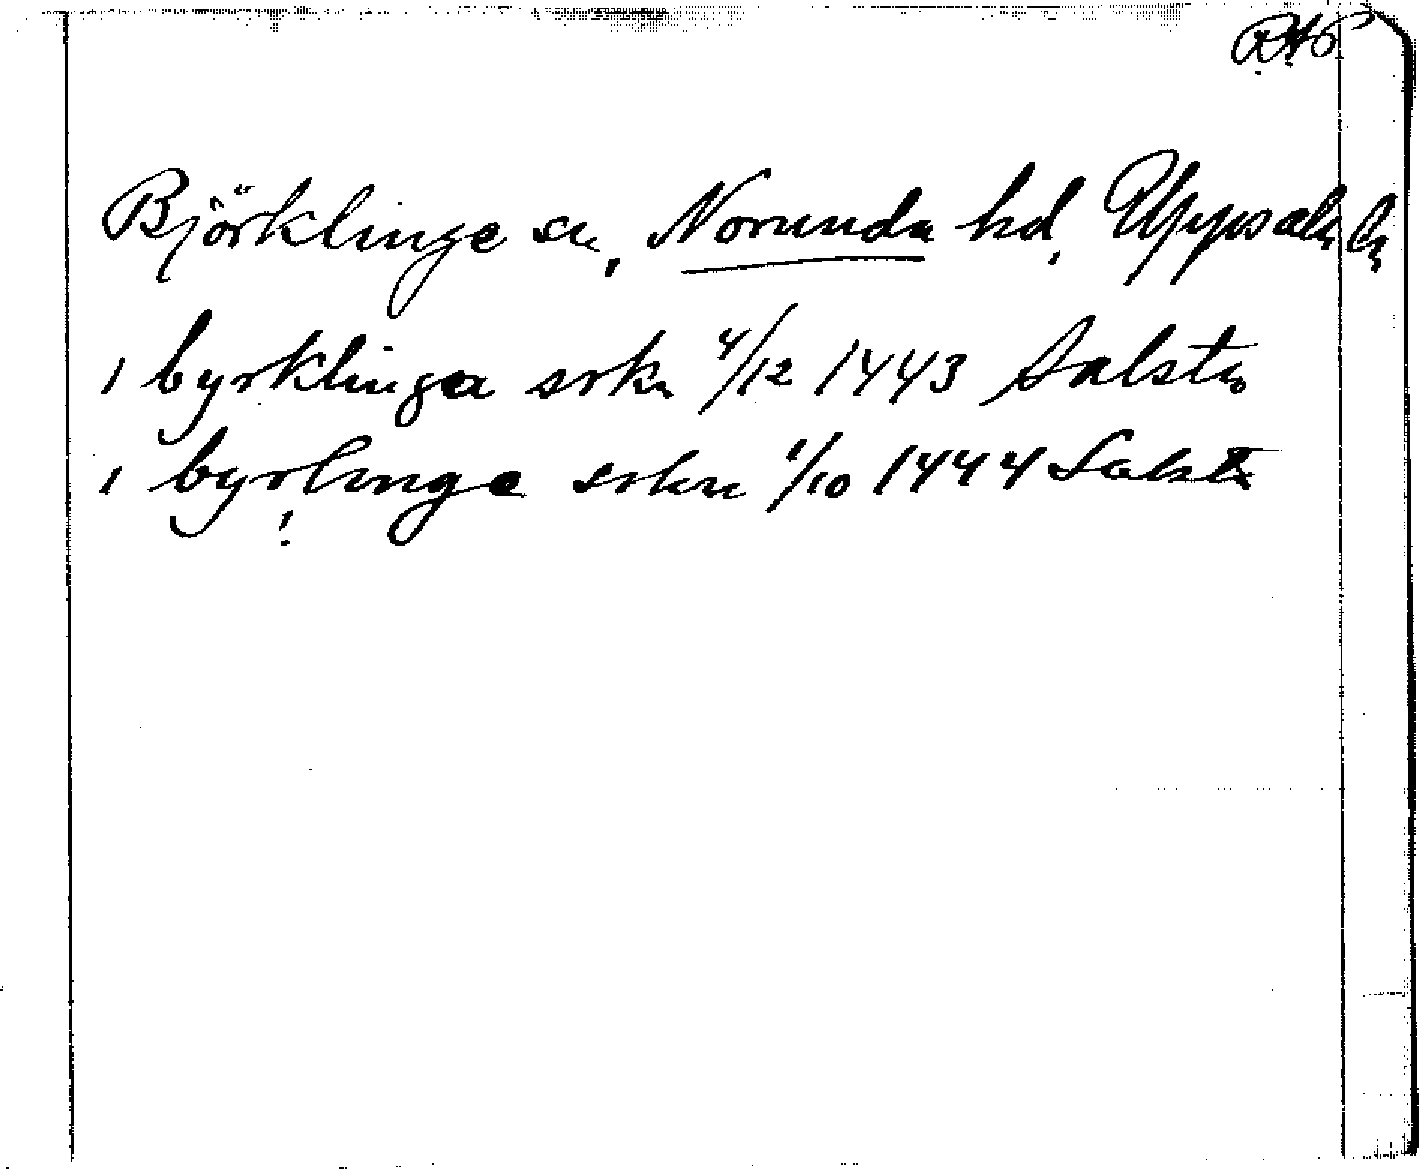 RAP
Björklinge sn, Norunda hd, Uppsala l
i byrklinga sokn 4/12 1443 Salsta
i byrlinge sokn 1/10 1444 Salsta
!